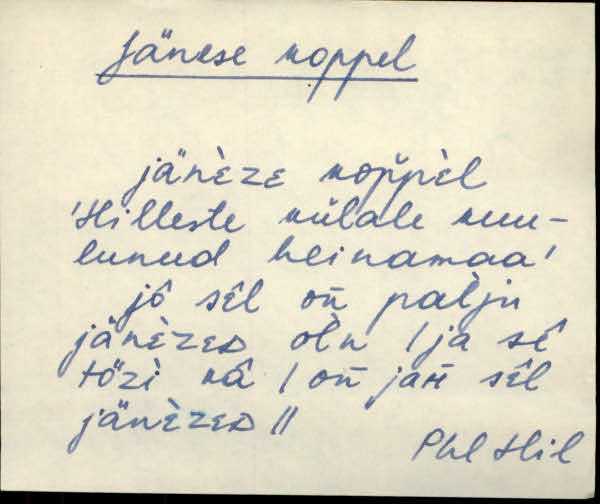 Jänese koppel
jänèze kop̆pèl
'Hilleste külale kuu-
lunud heinamaa'
jô sêl oñ palju
jänèzeᴅ oln / ja sê
tözi kâ / oñ jah sêl
jänèzeᴅ //
Phl Hil